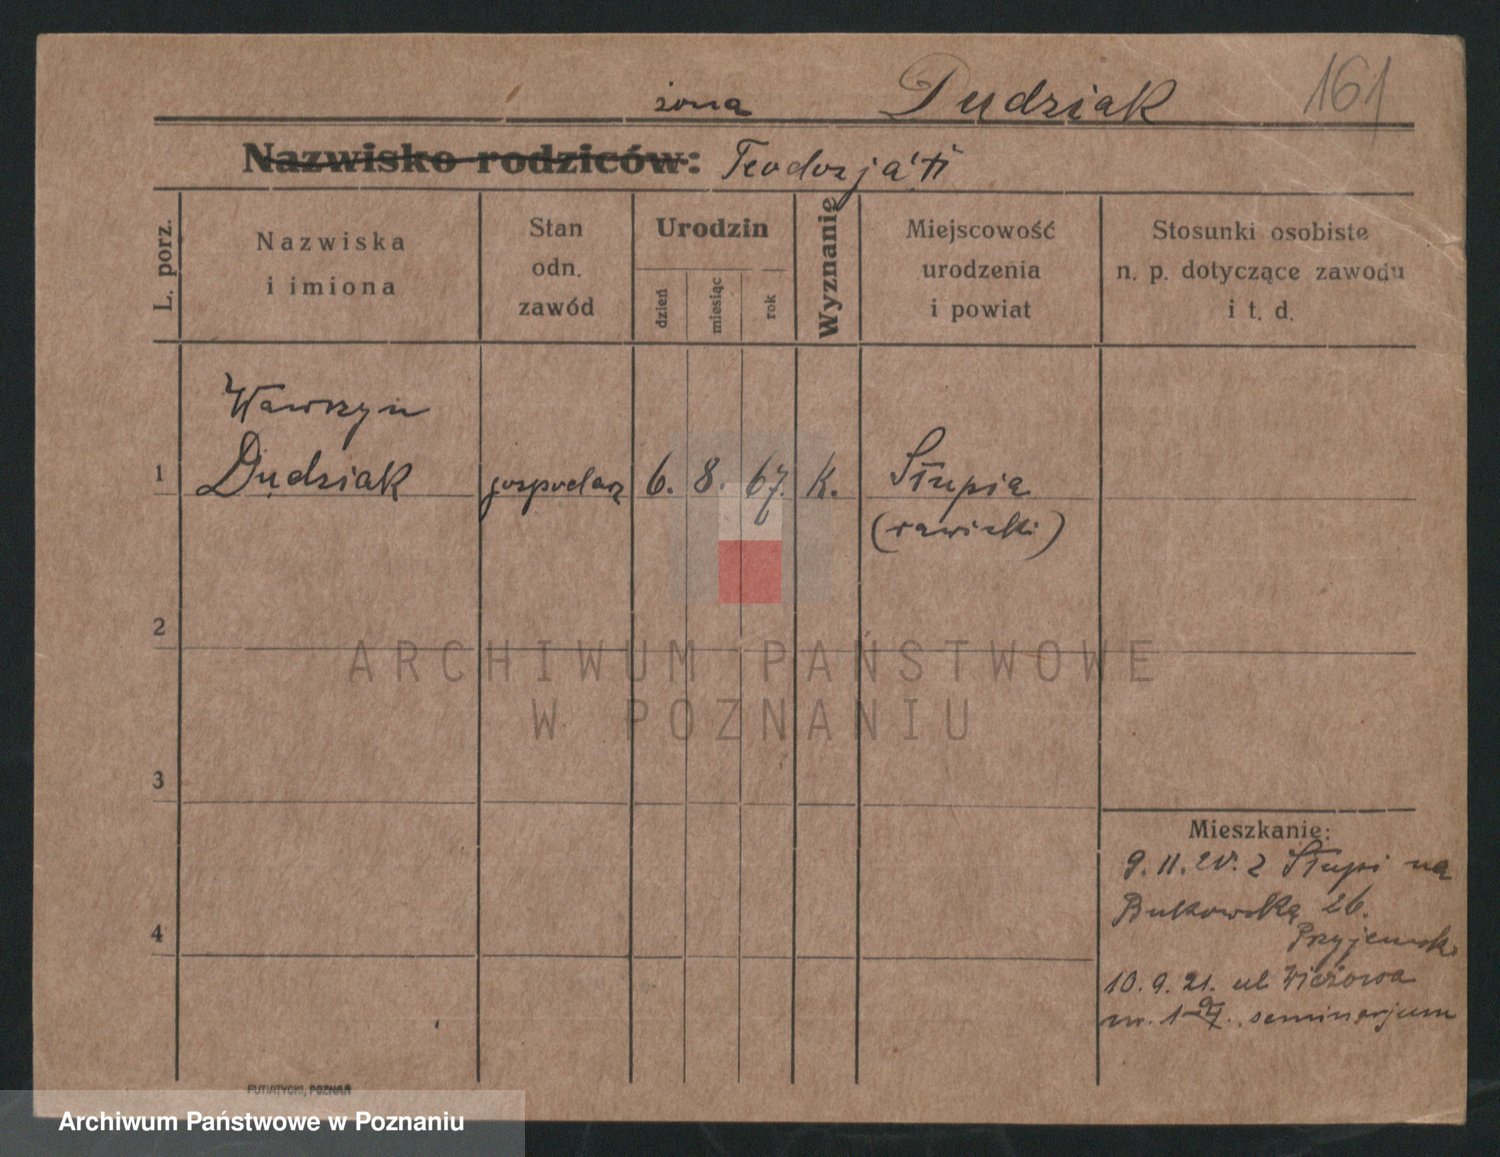 161
żona Dudziak
Nazwisko rodziców: Teodozja
L. porz.
Nazwiska
i imiona
Stan
odn.
zawód
Urodzin
dzień
miesiąc
rok
Wyznanie
Miejscowość
urodzenia
i powiat
Stosunki osobiste
n. p. dotyczące zawodu
i t. d.
Wawrzyn
1 Dudziak gospodarz 6. 8. 67. k. Słupia
(rawicki)
2
3
4
Mieszkanie:
9. 11. 20. z Słupi na
Bukowską 26.
Przyjemsk.
10. 9. 21. ul Wieżowa
nr. 1 seminarjum
PUTIATYCKI, POZNAŃ
ARCHIWUM PAŃSTWOWE
W POZNANIU
Archiwum Państwowe w Poznaniu